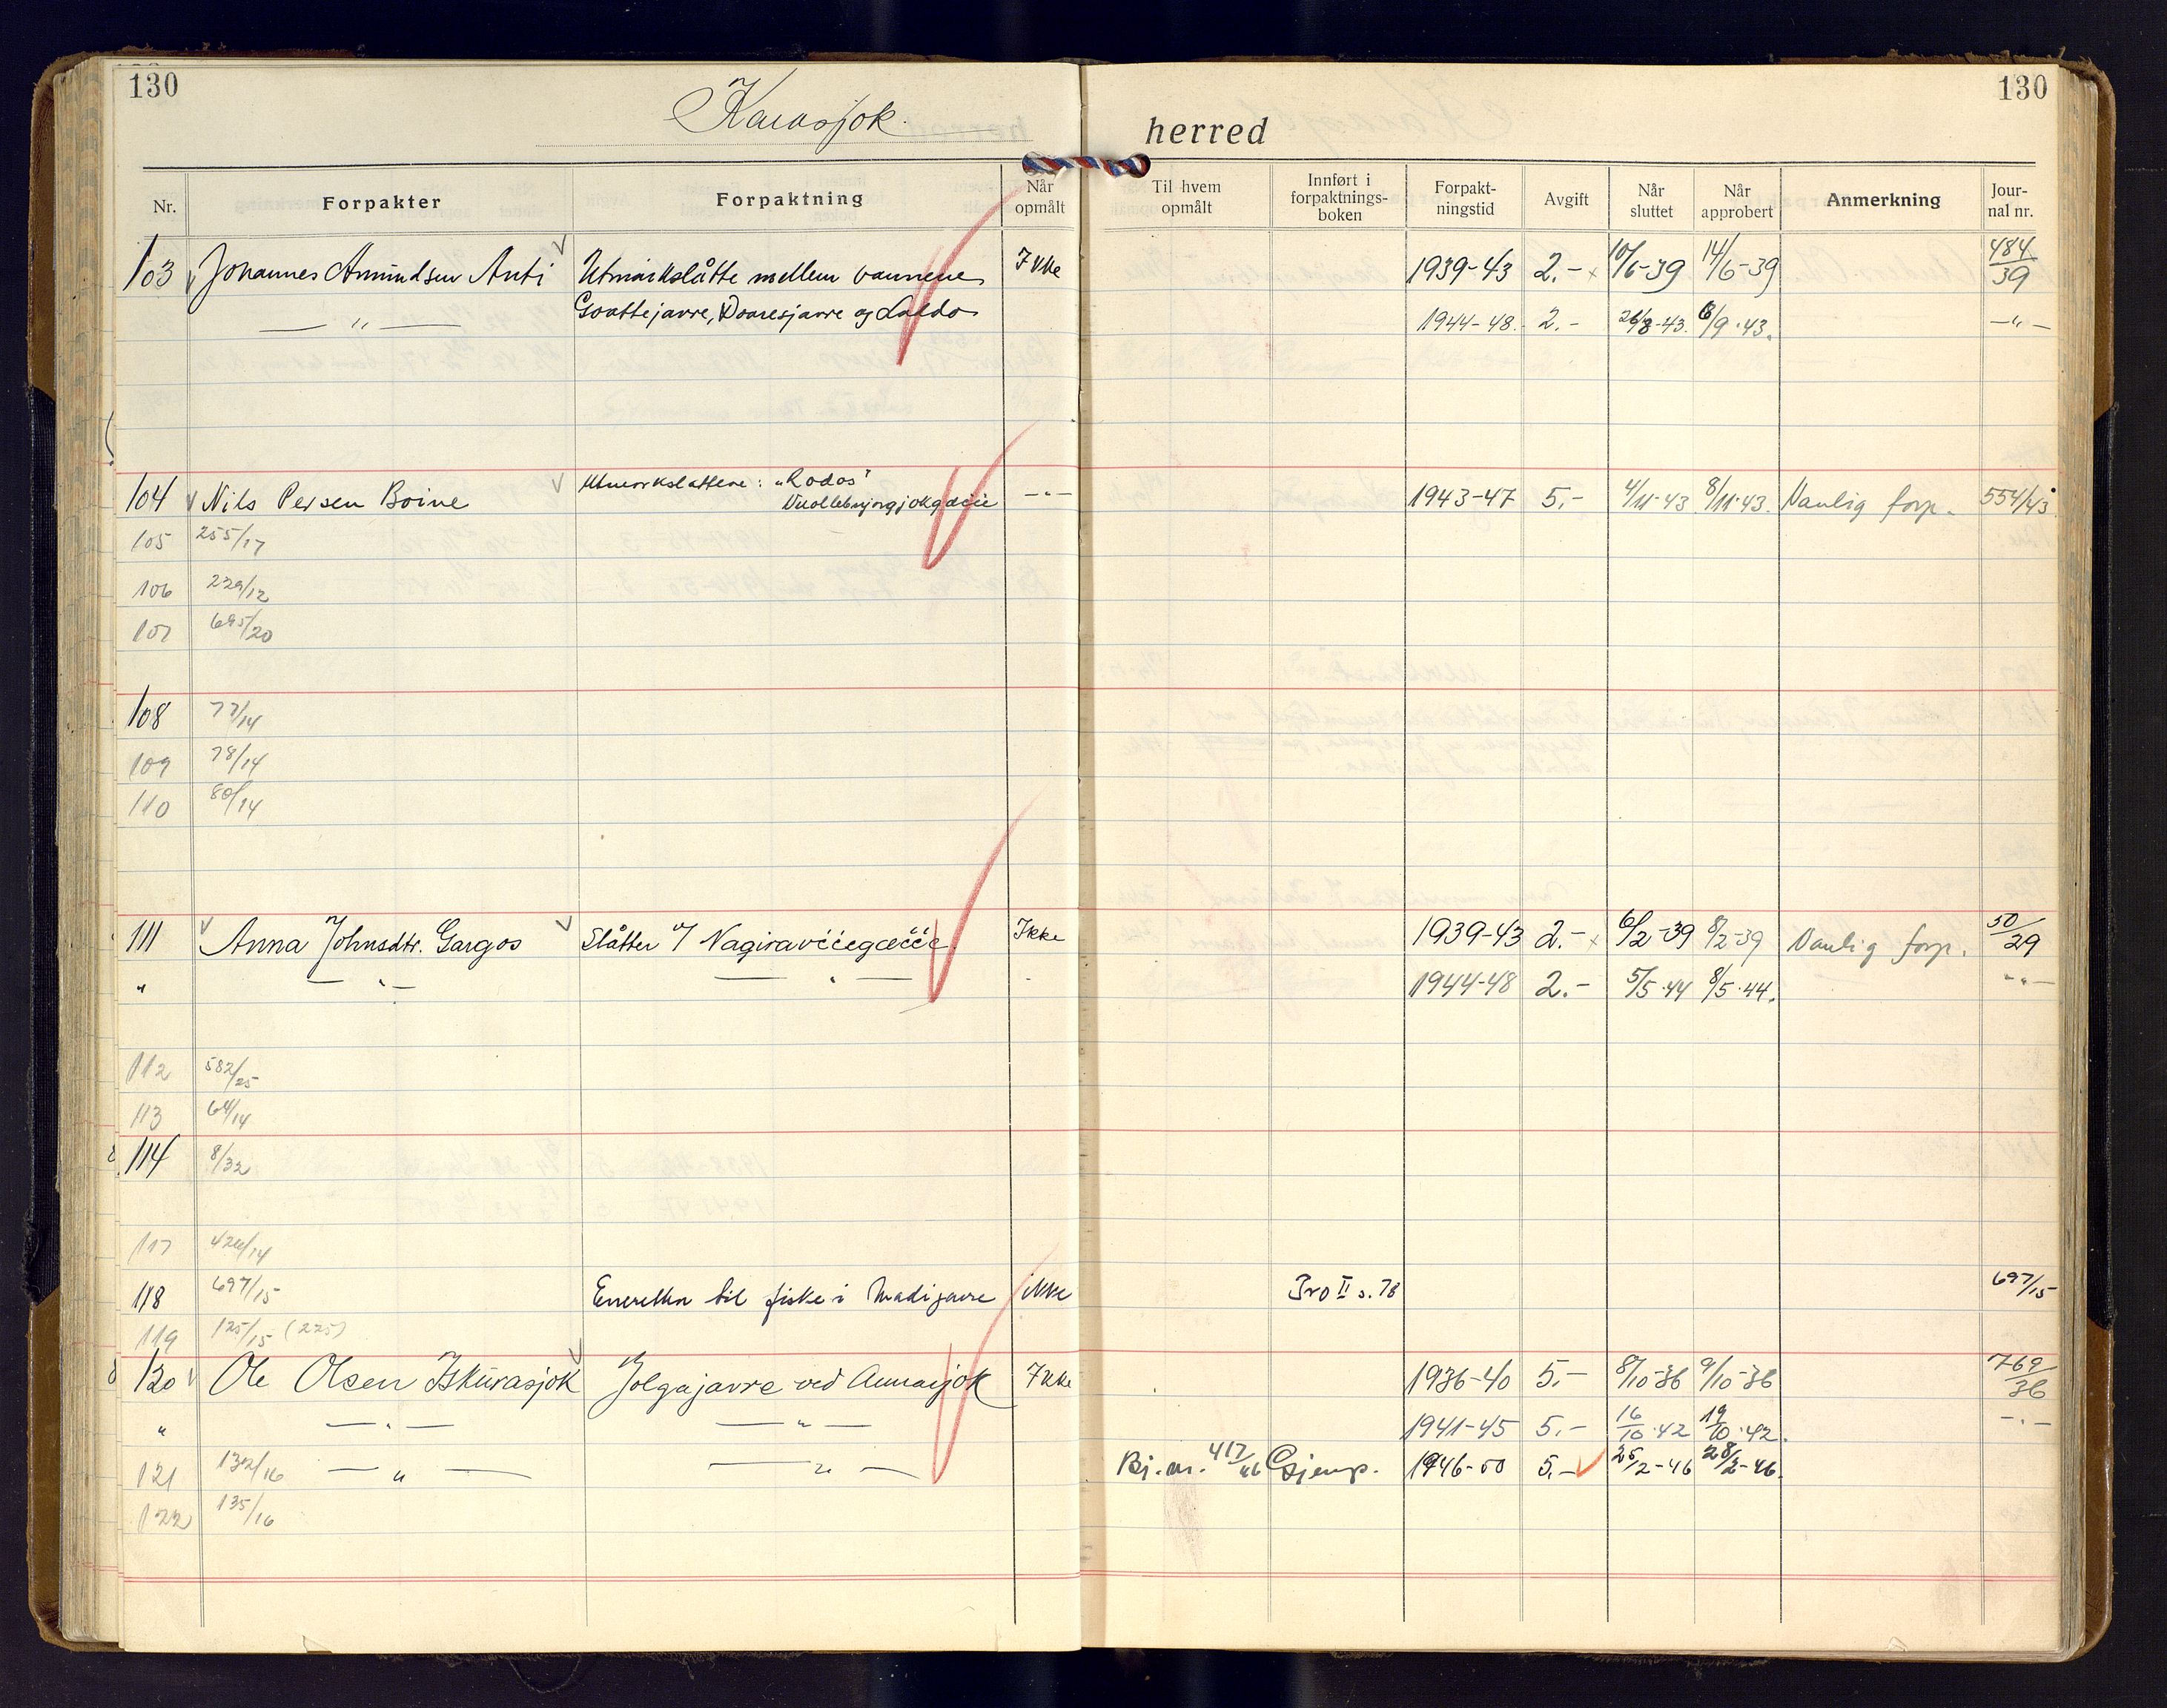 130
130
Karasjok herred
Nr. Forpakter Forpaktning Når opmålt Til hvem opmålt Innført i forpaktnings-boken Forpakt-ningstid Avgift Når sluttet Når approbert Anmerkning Jour-nal nr.
103 Johannes Amundsen Anti Utmarkslåtte mellem vannene Ikke 1939-43 2.- 10/6-39 14/6-39 484/39
— " — Goattejavre, Doaresjavre og Laldo 1944-48. 2.- 26/8-43. 6/9.43. —"—
104 Nils Persen Boine Utmarkslåttene: "Rodos" —"— 1943-47 5.- 4/11-43 8/11-43. Vanlig forp. 554/43
105 255/17
106 229/12
107 695/20
108 77/14
109 78/14
110 80/14
111 Anna Johnsdtr. Gargos Slåtten i Nagiravččegæčče Ikke 1939-43 2.- 6/2-39 8/2-39 Vanlig forp. 50/29
" — " — — " — 1944-48 2.- 5/5.44 8/5.44. —"—
112 582/25
113 64/14
114 8/32
117 426/14
118 697/15 Eneretten til fiske i Madijavre ikke Pro II s. 78 697/15
119 125/15 (225)
120 Ole Olsen Iskurasjok Jolgajavre ved Annasjok Ikke 1936-40 5.- 8/10-36 9/10-36 769/36
" — " — — " — 1941-45 5.- 16/10.42 19/10.42. —"—
121 132/16 — " — — " — Bj. nr. 417/46 Gjenp. 1946-50 5.- 25/2-46 28/2-46.
122 135/16